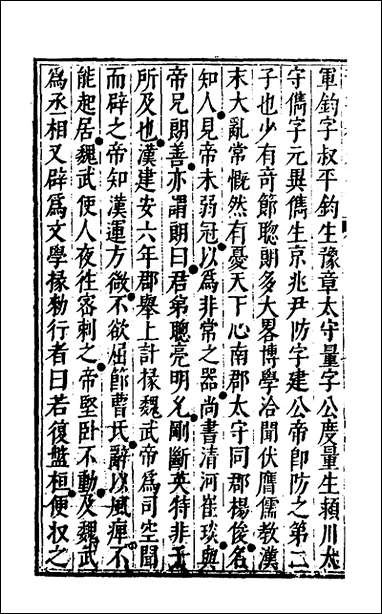 軍鈞字叔平鈞生豫章太守量字公度量生潁川太
守儁字元異儁生京兆尹防字建公帝即防之第二
子也少有奇節聰朗多大畧博學洽聞伏膺儒教漢
末大亂常慨然有憂天下心南郡太守同郡楊俊名
知人見帝未弱冠以爲非常之器尚書清河崔琰與
帝兄朗善亦謂朗曰君弟聰亮明允剛斷英特非子
所及也漢建安六年郡舉上計掾魏武帝爲司空聞
而辟之帝知漢運方微不欲屈節曹氏辭以風痺不
能起居魏武使人夜往密刺之帝堅卧不動及魏武
爲丞相又辟爲文學掾勑行者曰若復盤桓便收之